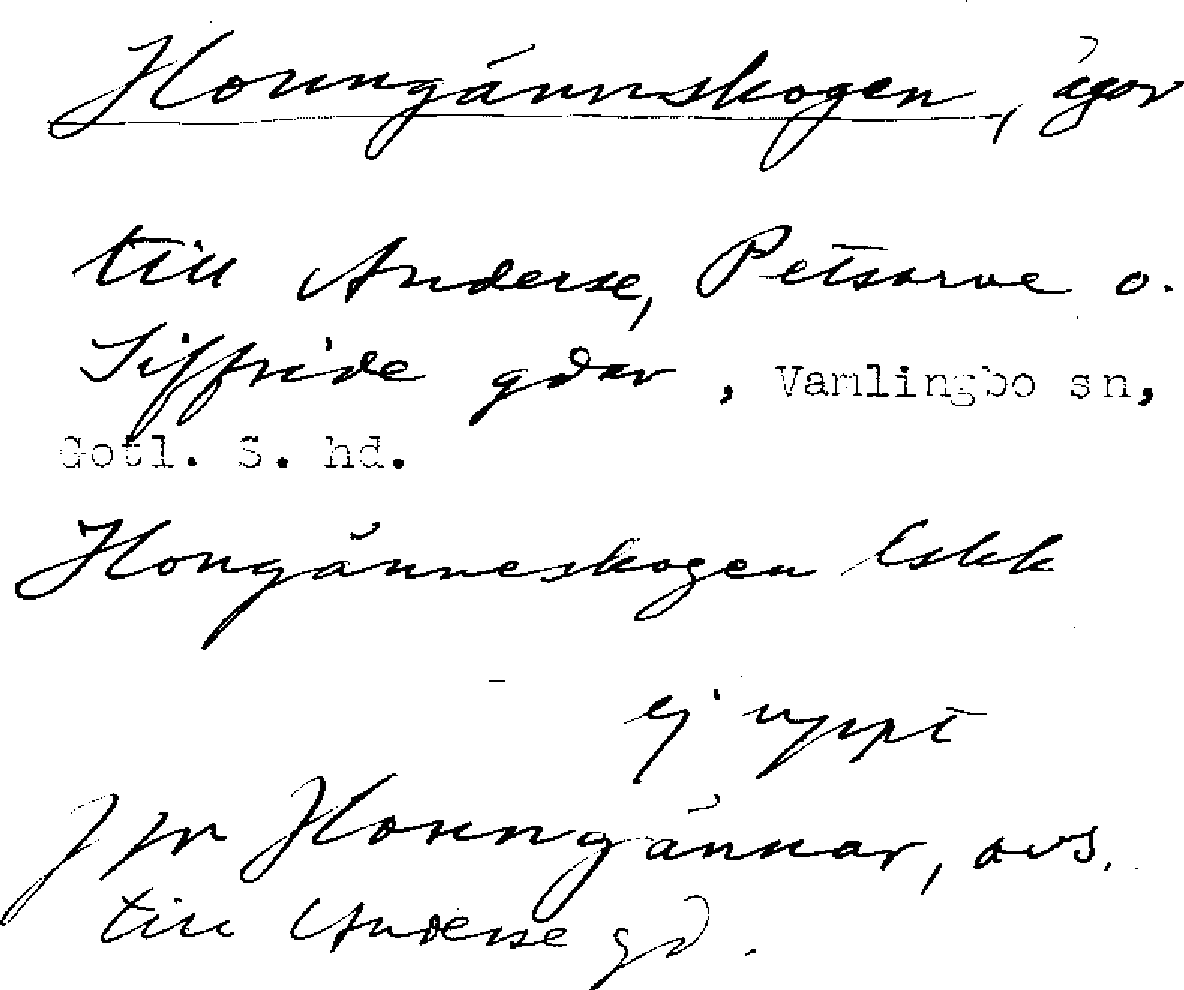 Hornngännskogen, ägor
till Anderse, Petsarve o.
Siffride gdar, Vamlingbo sn,
Gotl. S. hd.
Hongänneskogen Eskk
ej uppt
Jfr Hornngännar, avs.
till Anderse gd.